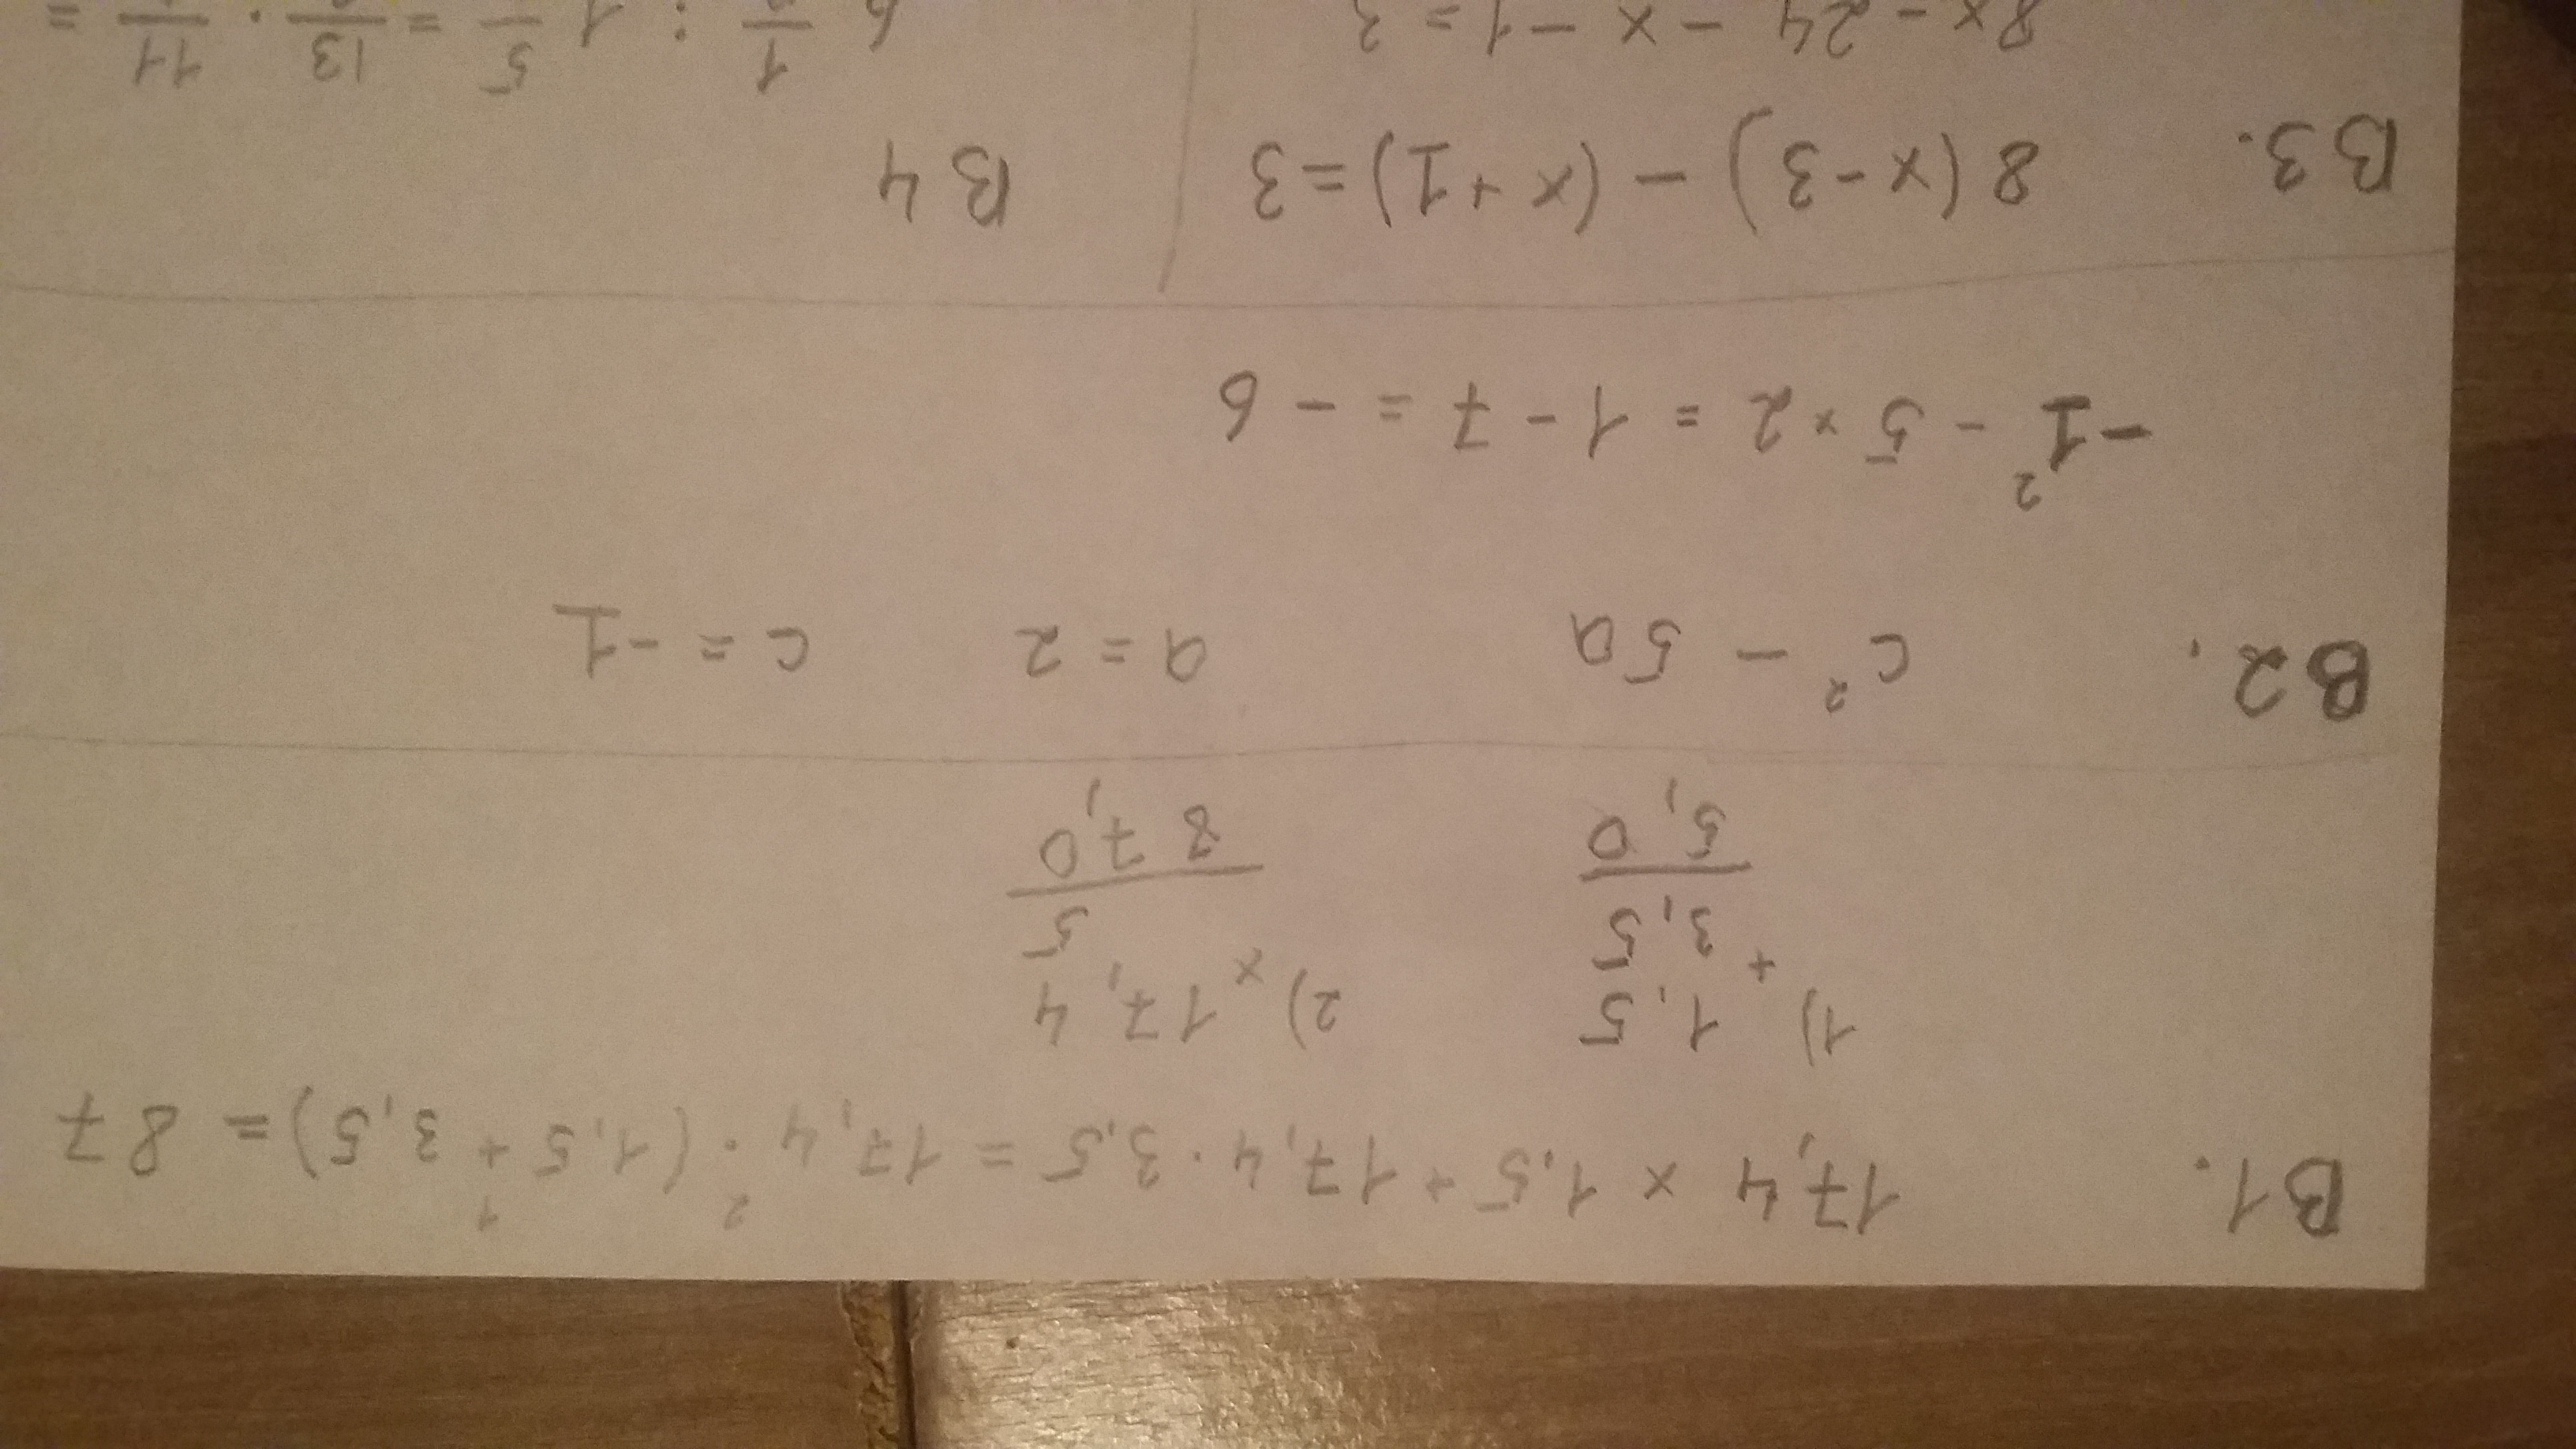 B1. 17,4 × 1,5 + 17,4 · 3,5 = 17,4 · (1,5 + 3,5) = 87
2 1
1) 1,5 2) × 17,4
+ 3,5 5
5,0 87,0
B2. c² - 5a a = 2 c = -1
-1² - 5 × 2 = 1 - 7 = - 6
B3. 8(x-3) - (x+1) = 3 B4
8x - 24 - x - 1 = 3 6 1 : 1 5 = 13 · 11 =